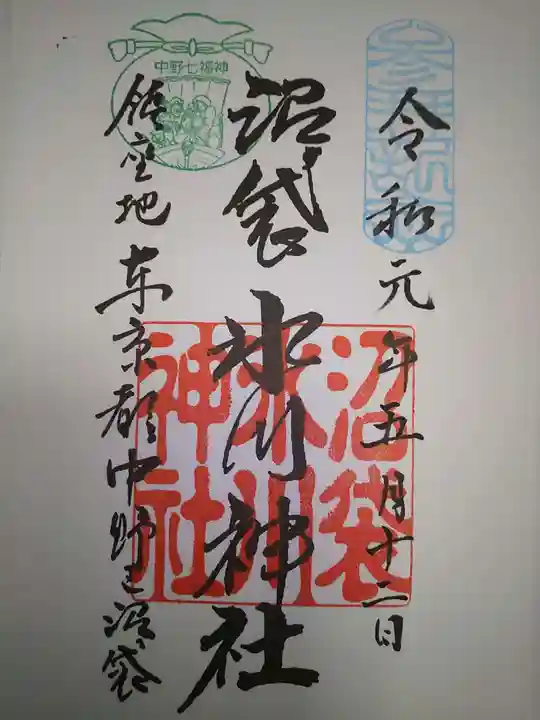 参拝記念
令和元年五月十二日
沼袋氷川神社
沼袋
氷川
神社
中野七福神
鎮座地 東京都中野区沼袋